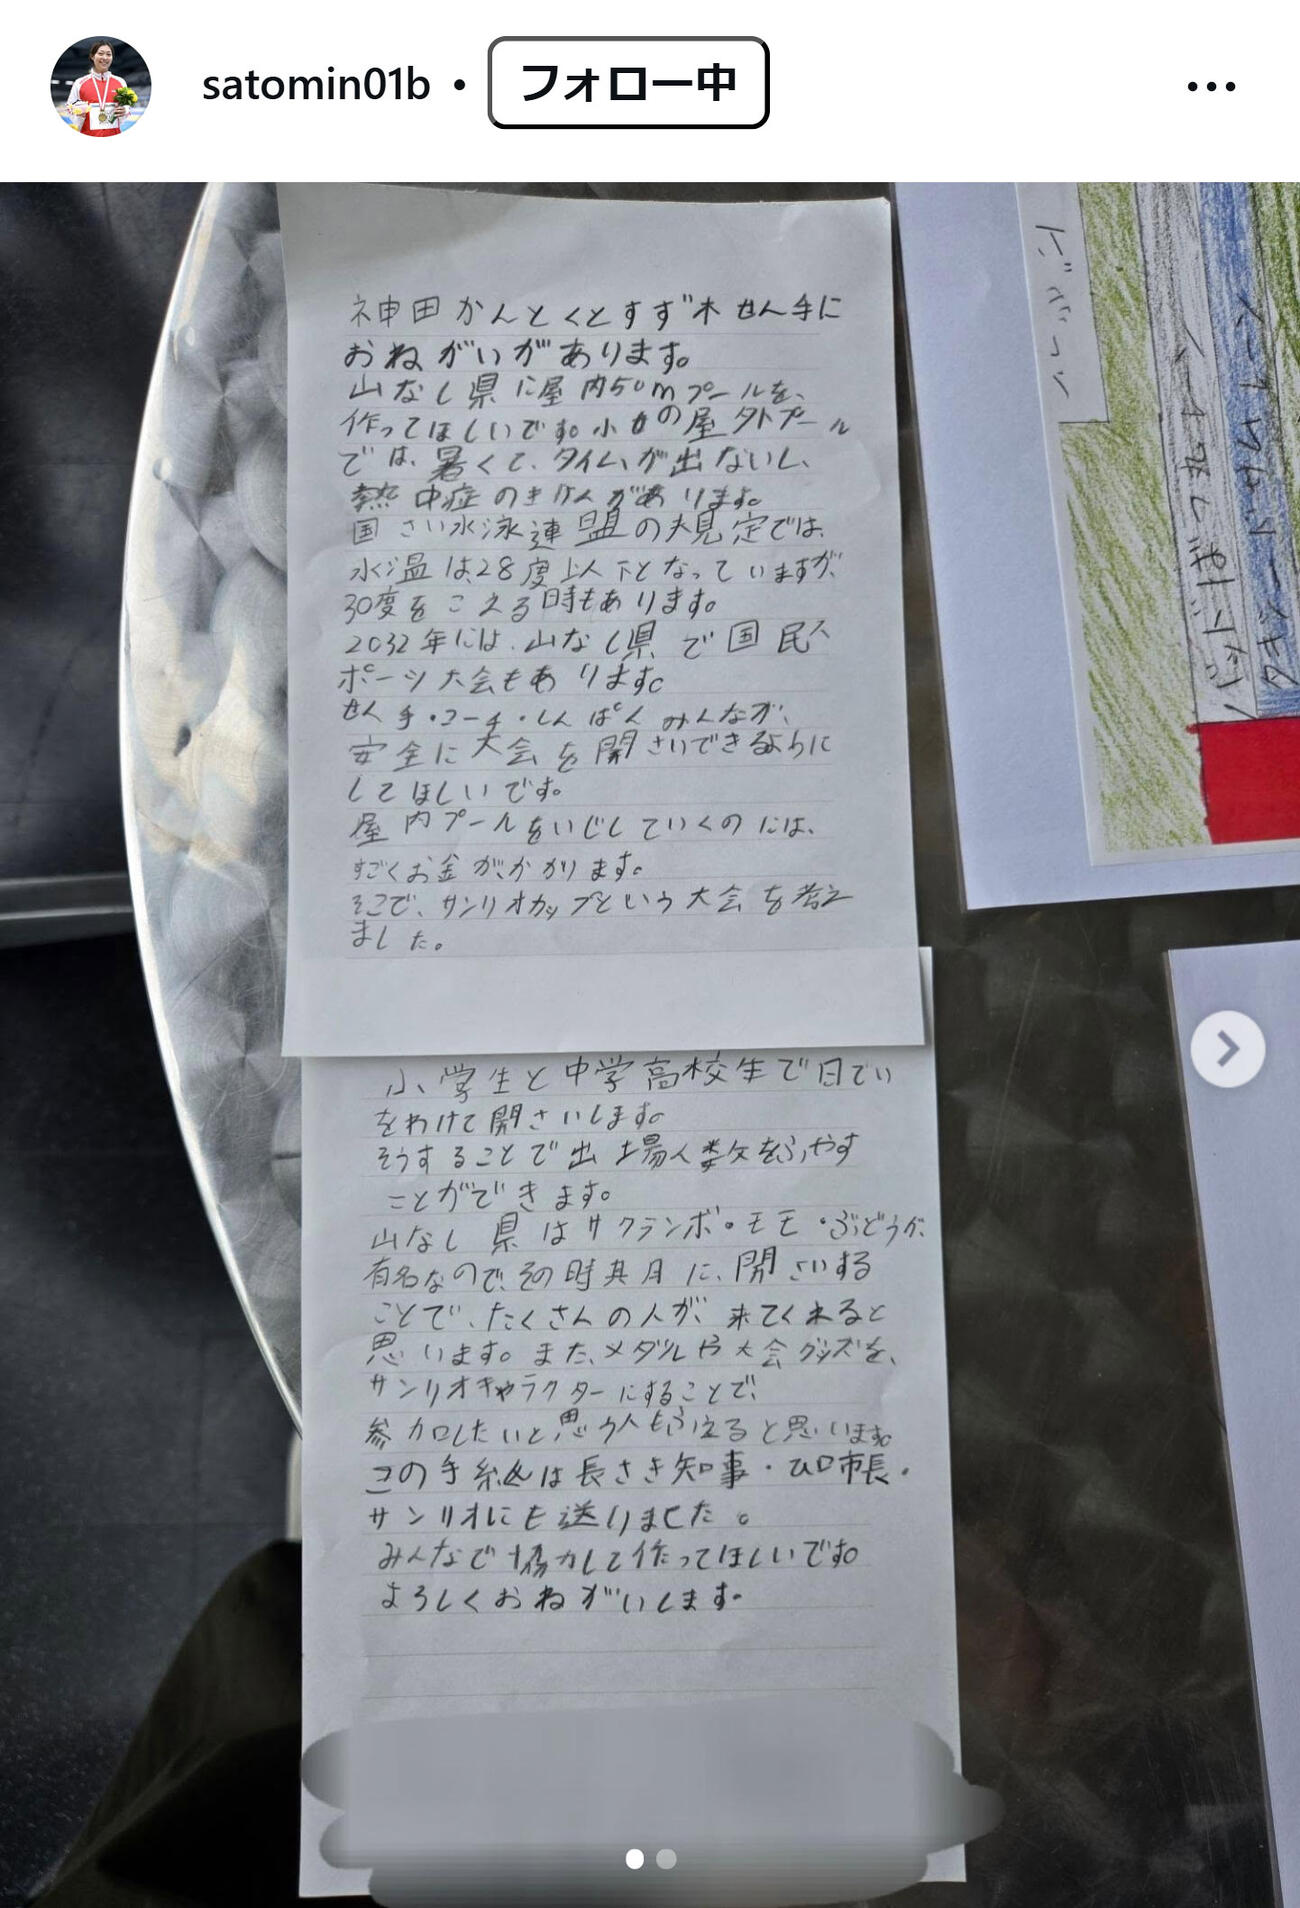 satomin01b • フォロー中
神田かんとくとすず木せん手に
おねがいがあります。
山なし県に屋内50mプールを、
作ってほしいです。小せの屋外プール
では、暑くて、タイムが出ないし、
熱中症のきけんがあります。
国さい水泳連盟の規定では、
水温は、28度以下となっていますが、
30度をこえる時もあります。
2032年には、山なし県で国民ス
ポーツ大会もあります。
せん手・コーチ・しんぱんみんなが、
安全に大会を開さいできるように
してほしいです。
屋内プールをいじしていくのには、
すごくお金がかかります。
そこで、サンリオカップという大会を考え
ました。
小学生と中学高校生で日てい
をわけて開さいします。
そうすることで出場人数をふやす
ことができます。
山なし県はサクランボ・モモ・ぶどうが、
有名なので、その時期に、開さいする
ことで、たくさんの人が、来てくれると
思います。また、メダルや大会グッズを、
サンリオキャラクターにすることで、
参加したいと思う人もふえると思います。
この手紙は長さき知事・市長・
サンリオにも送りました。
みんなで協力して作ってほしいです。
よろしくおねがいします。